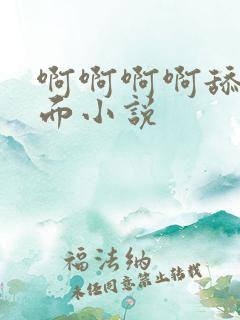 啊啊啊啊舔
而小说
福法纳
未经同意禁止转载